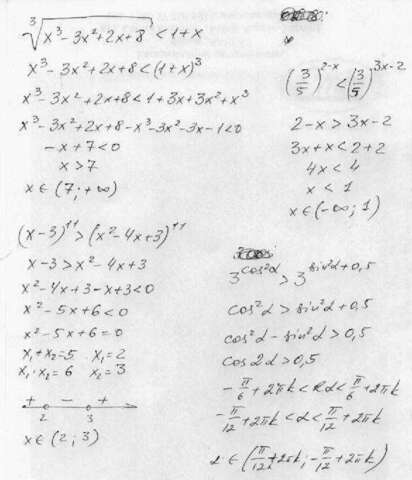 ∛(x³-3x²+2x+8) < 1+x
x³-3x²+2x+8 < (1+x)³
x³-3x²+2x+8 < 1+3x+3x²+x³
x³-3x²+2x+8-x³-3x²-3x-1<0
-x+7<0
x>7
x∈(7;+∞)
(x-3)¹¹ > (x²-4x+3)¹¹
x-3>x²-4x+3
x²-4x+3-x+3<0
x²-5x+6<0
x²-5x+6=0
x₁+x₂=5 x₁=2
x₁·x₂=6 x₂=3
+ - +
2 3
x∈(2;3)
(3/5)^(2-x) < (3/5)^(3x-2)
2-x>3x-2
3x+x<2+2
4x<4
x<1
x∈(-∞;1)
3^(cos²α) > 3^(sin²α+0,5)
cos²α>sin²α+0,5
cos²α-sin²α>0,5
cos2α>0,5
-π/6+2πk<2α<π/6+2πk
-π/12+2πk<α<π/12+2πk
α∈(π/12+2πk;-π/12+2πk)